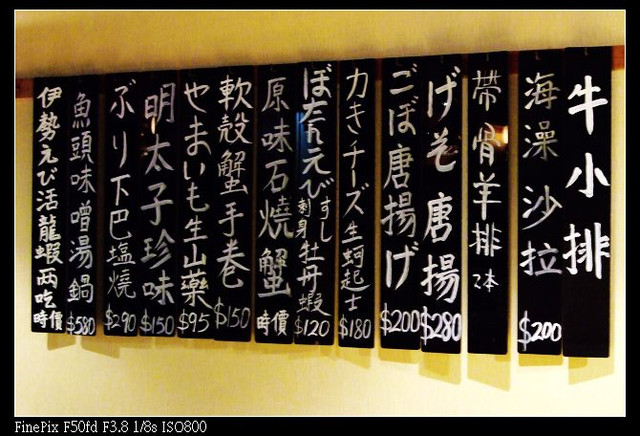 牛小排
海藻沙拉 $200
帶骨羊排 2本
げそ唐揚 $280
ごぼ唐揚げ $200
カきチーズ 生蚵起士 $180
ぼたんえび すし 刺身 牡丹蝦 $120
原味石燒蟹 時價
軟殼蟹手卷 $150
やまいも生山藥 $95
明太子珍味 $150
ぶり下巴塩燒 $290
魚頭味噌湯鍋 $580
伊勢えび活龍蝦両吃 時價
FinePix F50fd F3.8 1/8s ISO800